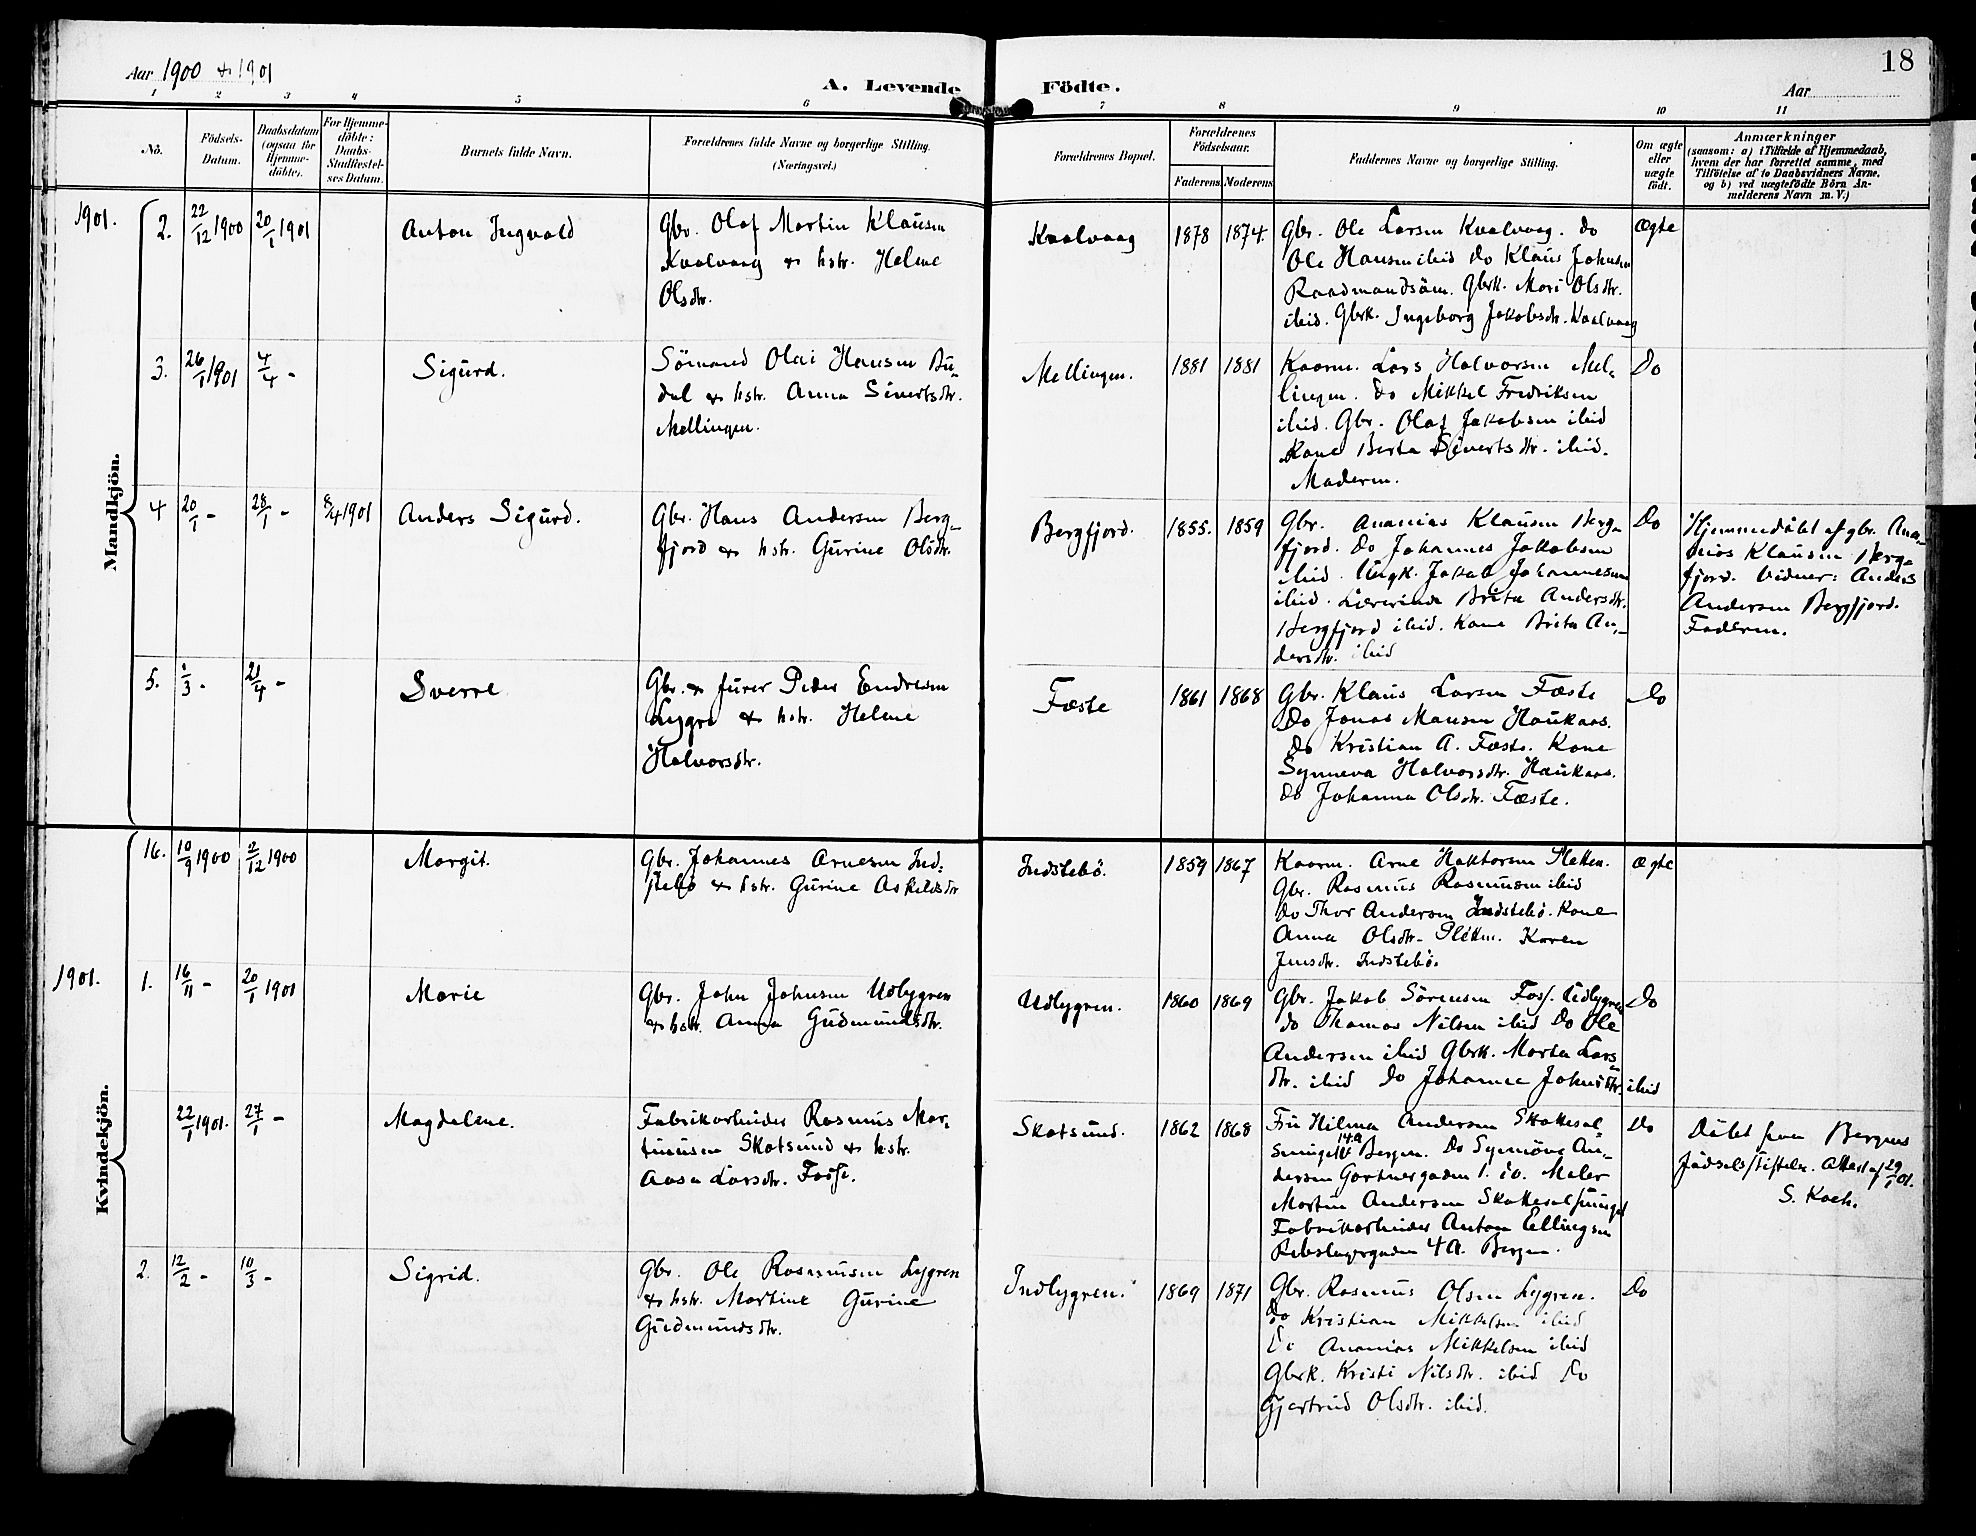 18
Aar 1900 & 1901
A. Levende Födte.
Aar
1 2 3 4 5 6 7 8 9 10 11
No.
Födsels-
Datum.
Daabsdatum
(ogsaa for
Hjemme-
döbte).
For Hjemme-
döbte:
Daabs-
Stadfæstel-
ses Datum.
Barnets fulde Navn.
Forældrenes fulde Navne og borgerlige Stilling.
(Næringsvei.)
Forældrenes Bopæl.
Forældrenes
Födselsaar.
Faderens Moderens
Faddernes Navne og borgerlige Stilling.
Om ægte
eller
uægte
födt.
Anmærkninger
(saasom: a) i Tilfælde af Hjemmedaab,
hvem der har forrettet samme, med
Tilföielse af to Daabsvidners Navne,
og b) ved uægtefödte Börn An-
melderens Navn m. V.)
Mandkjön.
1901.
2.
22/12 1900
20/1 1901
Anton Ingvald
Gbr. Olaf Martin Klausen
Kvalvaag & hstr. Helene
Olsdtr.
Kvalvaag
1878
1874.
Gbr. Ole Larsen Kvalvaag. do
Ole Hansen ibid do Klaus Johnsen
Raadmandsöen. Gbrk. Mari Olsdtr.
ibid. Gbrk. Ingeborg Jakobsdtr. Kvalvaag
Ægte
3.
26/1 1901
4/4 -
Sigurd.
Sömand Olai Hansen Bu-
dal & hstr. Anna Sivertsdtr.
Mellingen.
Mellingen.
1881
1881
Kaarm. Lars Halvorsen Mel-
lingen. Do Mikkel Fredriksen
ibid. Gbr. Olaf Jakobsen ibid
Kone Berta Sivertsdtr. ibid.
Moderen.
Do
4
20/1 -
28/1 -
8/4 1901
Anders Sigurd.
Gbr. Hans Andersen Berg-
fjord & hstr. Gurine Olsdtr.
Bergfjord.
1855.
1859
Gbr. Ananias Klausen Berg-
fjord. Do Johannes Jakobsen
ibid. Ungk. Jakob Johannesen
ibid. Lærerinde Brita Andersdtr.
Bergfjord ibid. Kone Brita An-
dersdtr. ibid
Do
Hjemmedöbt af gbr. Ana-
nias Klausen Berg-
fjord. Vidner: Anders
Andersen Bergfjord.
Faderen.
5.
1/3 -
21/4 -
Sverre
Gbr. & furer Peder Endresen
Lygre & hstr. Helene
Halvorsdtr.
Fæste
1861
1868
Gbr. Klaus Larsen Fæste
Do Jonas Monsen Haukaas.
Do Kristian A. Fæste. Kone
Synneva Halvorsdtr. Haukaas.
do Johanna Olsdtr. Fæste.
Do
Kvindekjön.
16.
10/9 1900
2/12 1900
Margit.
Gbr. Johannes Arnesen Ind-
stebö & hstr. Gurine Askeldsdtr
Indstebö.
1859
1867
Kaarm. Arne Haktorsen Sletten.
Gbr. Rasmus Rasmussen ibid
do Thor Andersen Indstebö. Kone
Anna Olsdtr. Sletten. Karen
Jensdtr. Indstebö.
Ægte
1901.
1.
16/11 -
20/1 1901
Marie
Gbr. John Johnsen Udlygren
& hstr. Anna Gudmundsdtr.
Udlygren.
1860
1869
Gbr. Jakob Sörensen Foss. Udlygren
do Thomas Nilsen ibid Do Ole
Andersen ibid Gbrk. Marta Lars-
dtr. ibid do Johanne Johnsdtr. ibid
Do
22/1 1901.
27/1 -
Magdalene.
Fabrikarbeider Rasmus Mar-
tinusen Skotsund & hstr.
Aasa Larsdtr. Fosse.
Skotsund.
1862
1868
Fru Hilma Andersen Skottesal-
muinget 14a Bergen. Do Synnöve An-
dersen Gartnergaden 1. do. Maler
Martin Andersen
Fabrikarbeider Anton Ellingsen
Rebslagergaden 4A. Bergen.
Do
Döbt paa Bergens
Födselsstiftelse. Attest af 29/1 01.
S. Koch.
2.
12/2 -
10/3 -
Sigrid.
Gbr. Ole Rasmussen Lygren
& hstr. Martine Gurine
Gudmundsdtr.
Indlygren.
1869
1871
Gbr. Rasmus Olsen Lygren.
Do Kristian Mikkelsen ibid
Do Ananias Mikkelsen ibid
Gbrk. Kristi Nilsdtr. ibid Do
Gjertrud Olsdtr. ibid.
Do